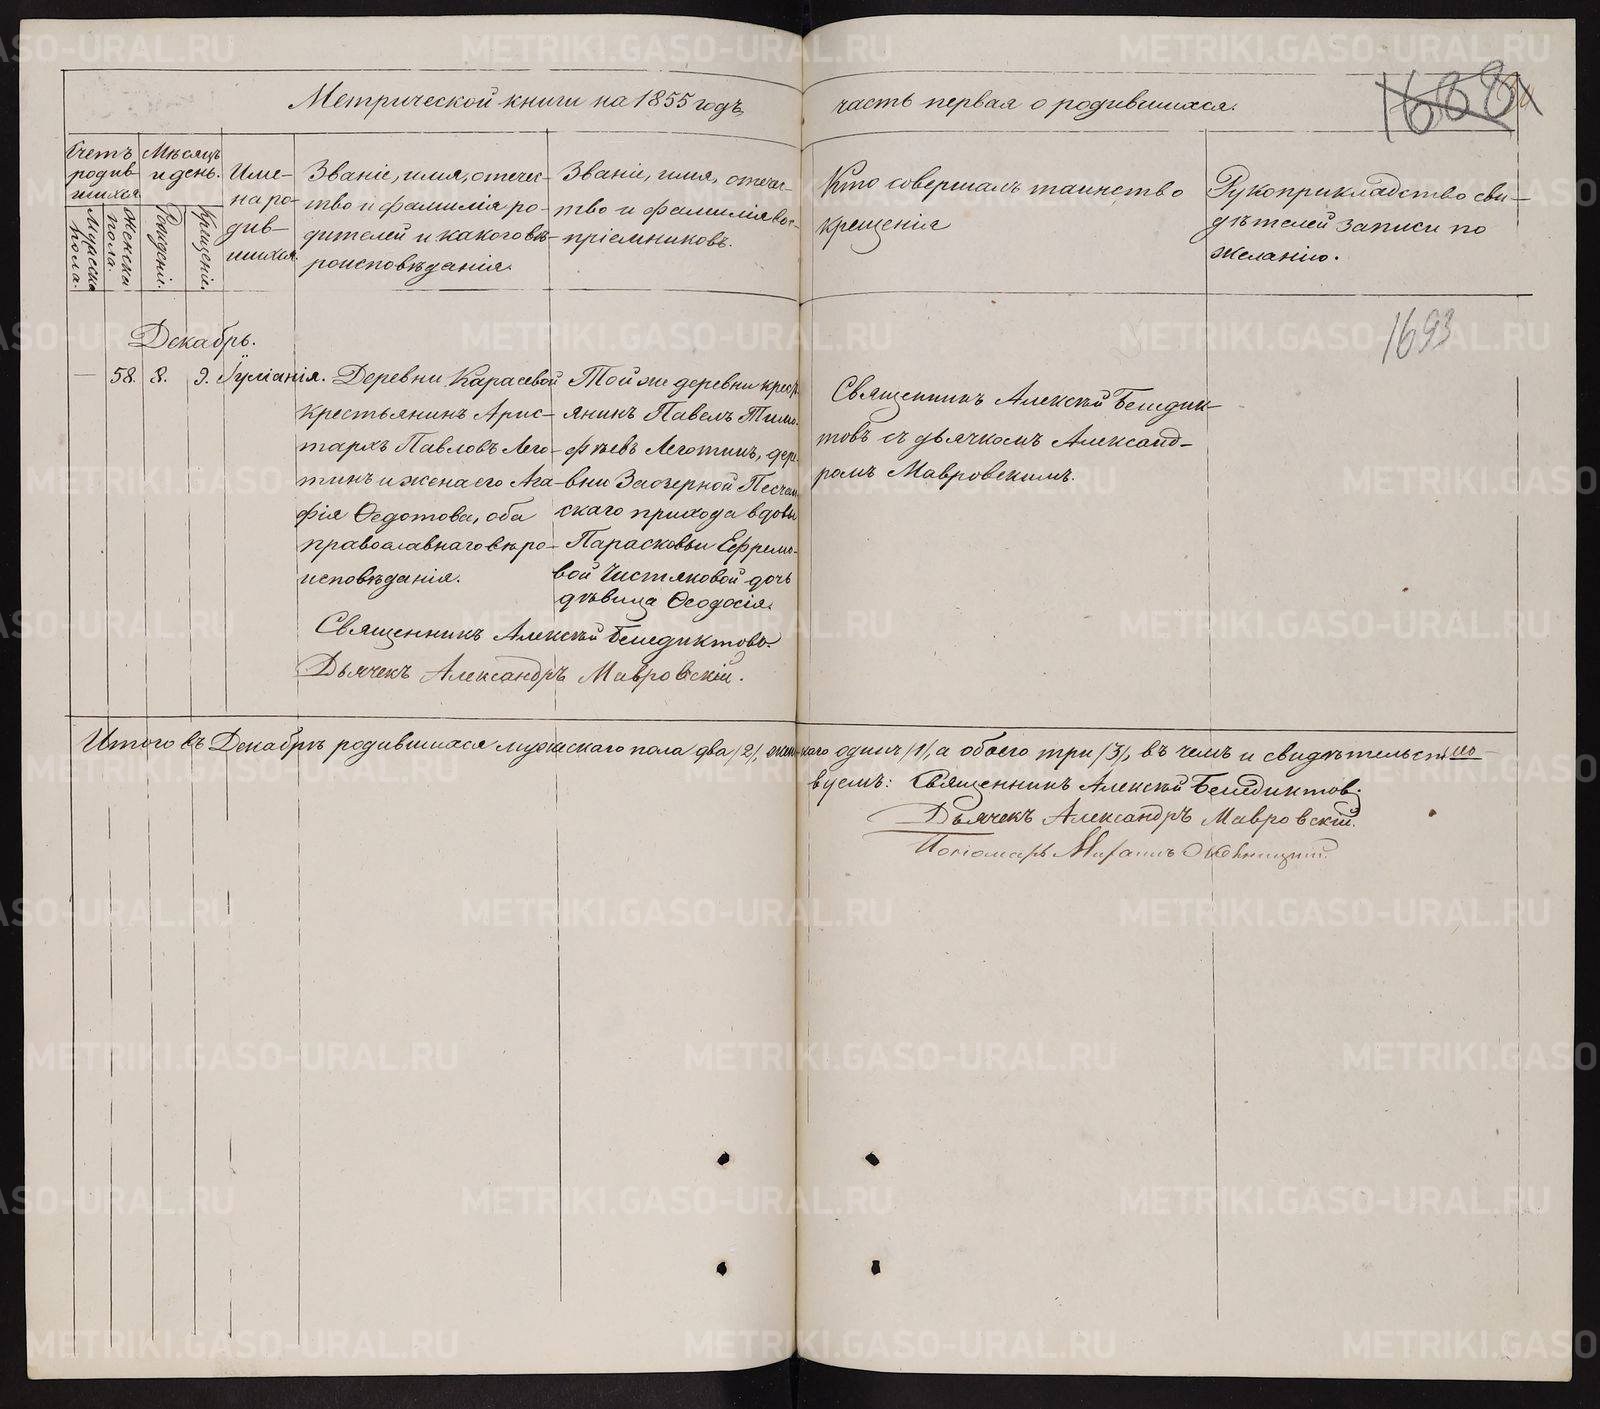 Метрической книги на 1855 годъ часть первая о родившихся.
1688
Счетъ родив-шихся
Мужеска пола.
Женска пола.
Мѣсяцъ и день.
Рожденія.
Крещенія.
Име-
на ро-
див-
шихся.
Званіе, имя, отечес-
тво и фамилія ро-
дителей и какого вѣ-
роисповѣданія.
Званіе, имя, отечес-
тво и фамилія вос-
пріемниковъ.
Кто совершалъ таинство
крещенія
Рукоприкладство сви-
дѣтелей записи по
желанію.
1693
Декабрь.
— 58. 8. 9. Іуліанія.
Деревни Карасевой
крестьянинъ Арис-
тархъ Павловъ Лего-
тинъ и жена его Ага-
фія Ѳедотова, оба
православнаго вѣро-
исповѣданія.
Той же деревни крест-
янинъ Павелъ Тимо-
фѣевъ Леготинъ, дере-
вни Заозерной Песчан-
скаго прихода вдовы
Парасковьи Ефремо-
вой Чистяковой дочь
дѣвица Ѳеодосія.
Священникъ Алексѣй Бенедик-
товъ съ дьячкомъ Александ-
ромъ Мавровскимъ.
Священникъ Алексѣй Бенедиктовъ.
Дьячекъ Александръ Мавровскій.
Итого въ Декабрѣ родившихся мужескаго пола два /2/, женскаго одинъ /1/, а обоего три /3/, въ чемъ и свидѣтельст-
вуемъ: Священникъ Алексѣй Бенедиктовъ.
Дьячекъ Александръ Мавровскій.
Пономарь
METRIKI.GASO-URAL.RU